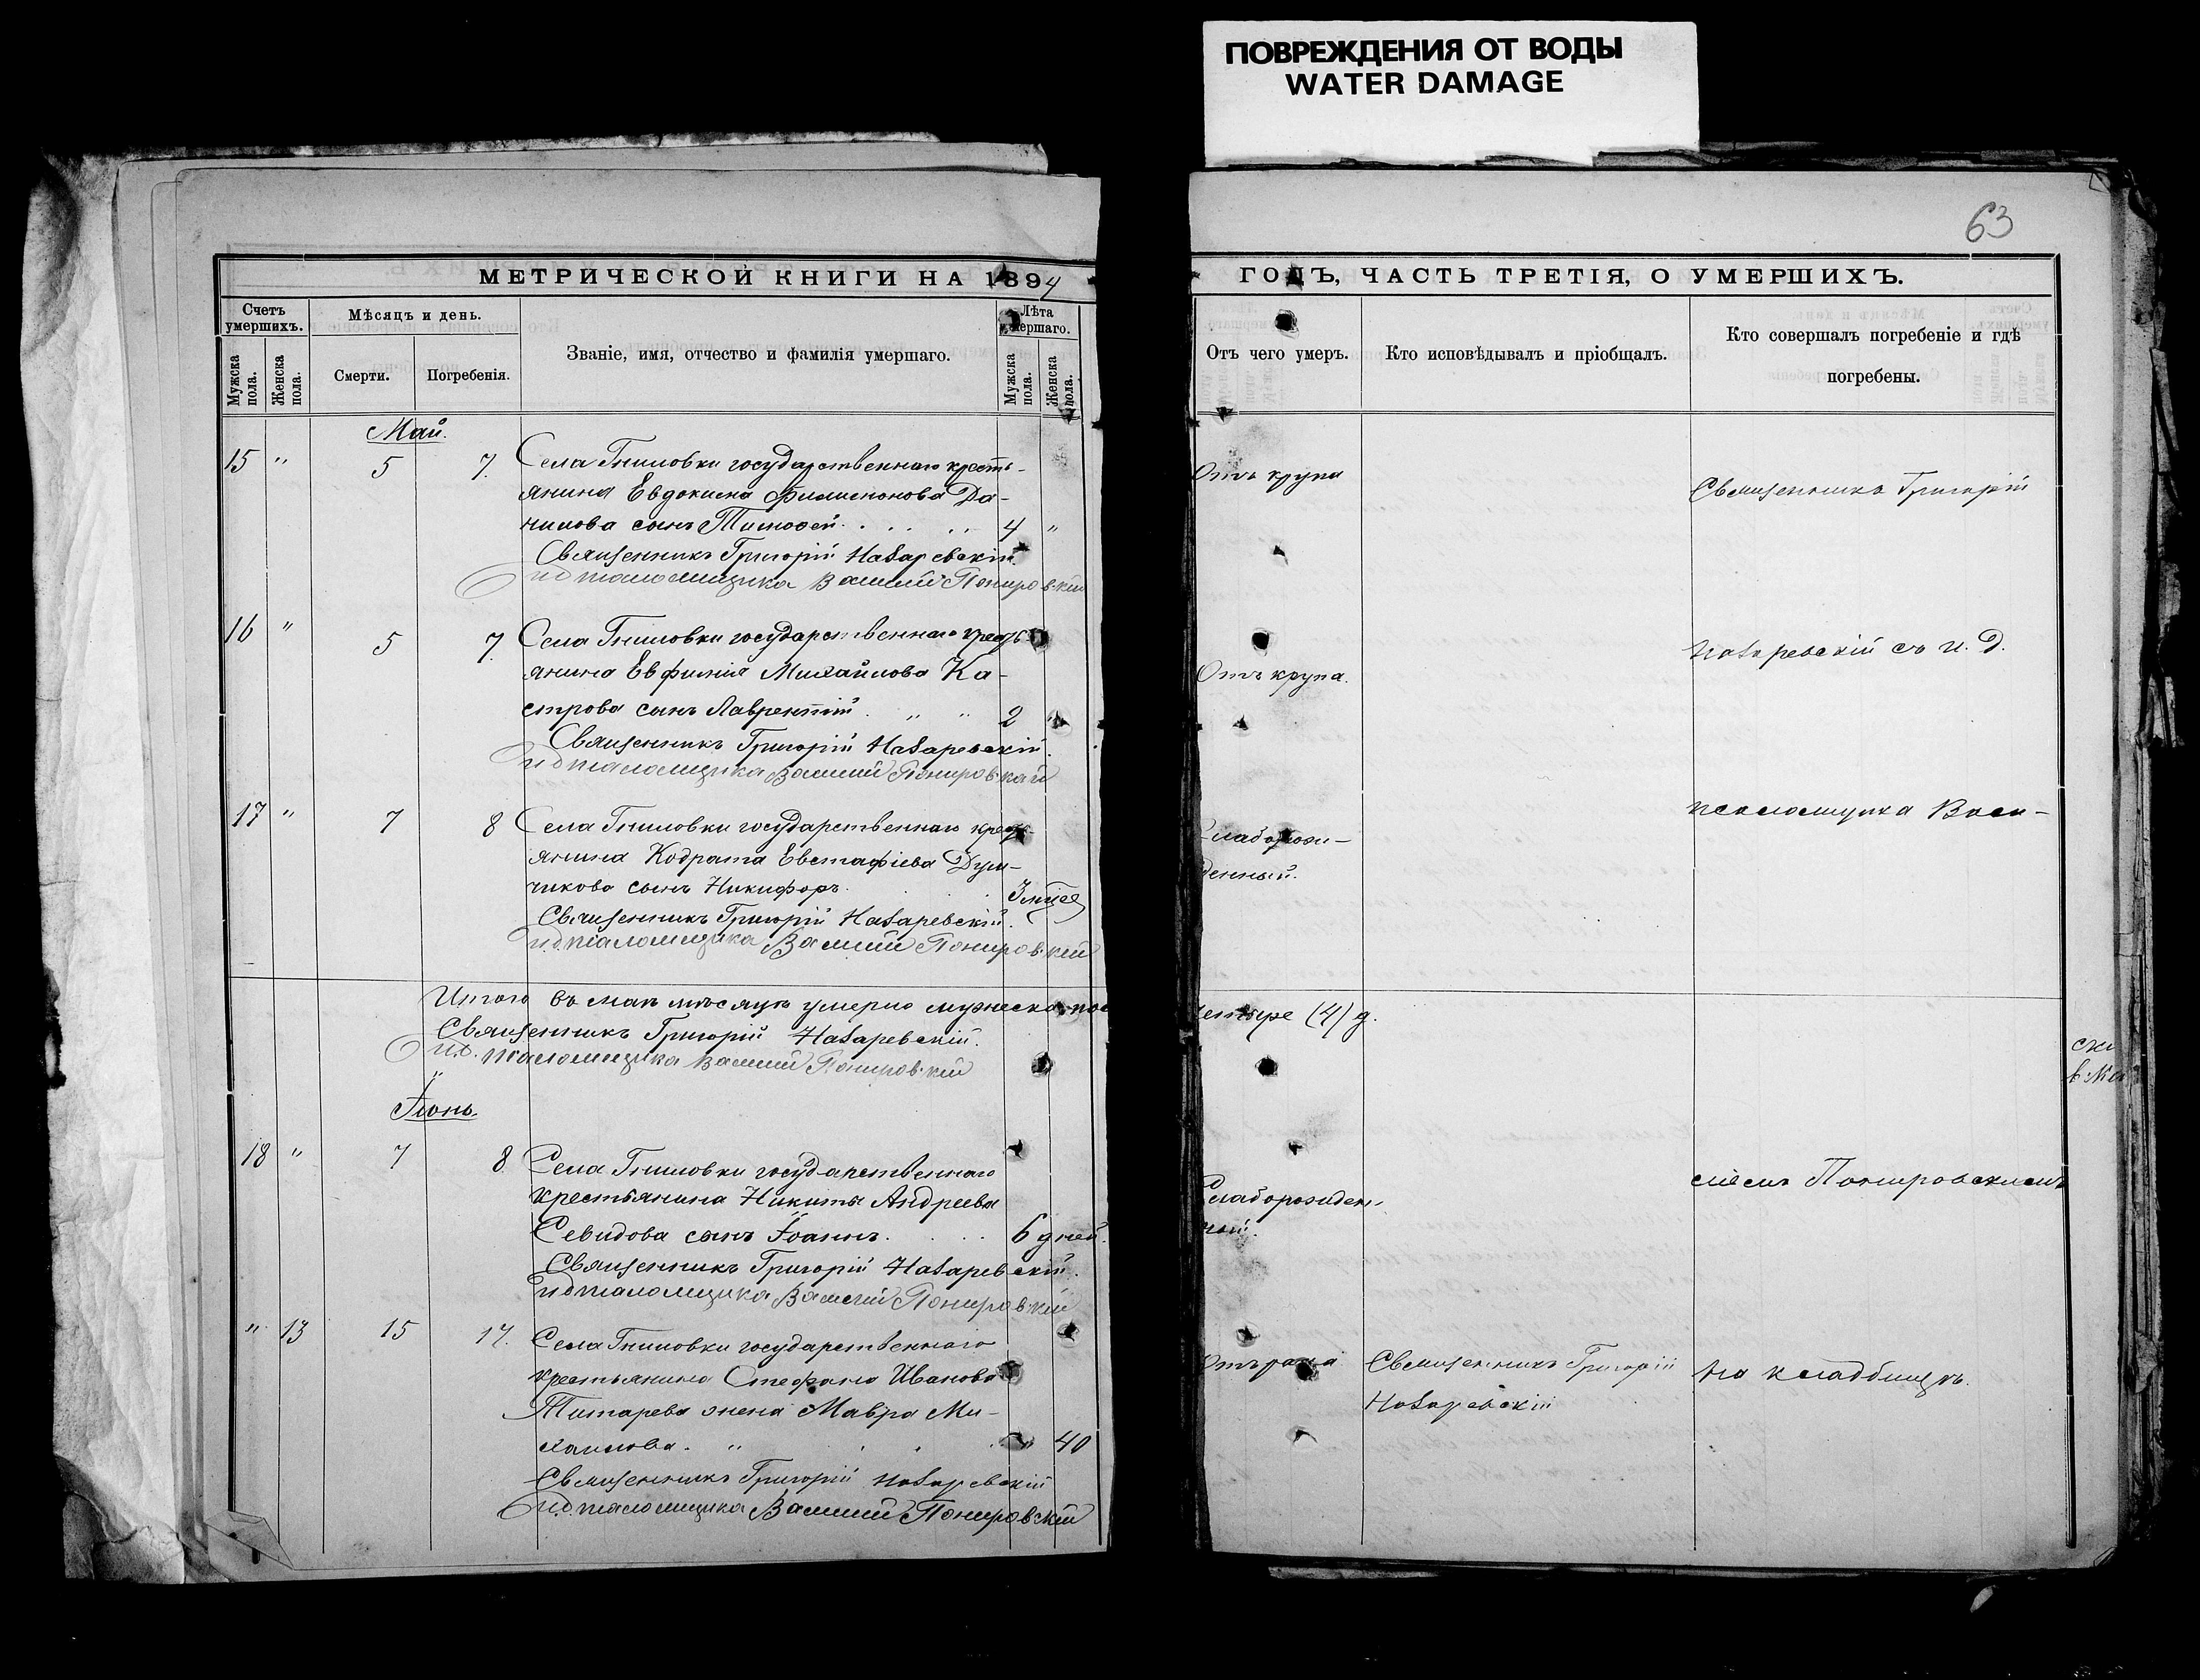 ПОВРЕЖДЕНИЯ ОТ ВОДЫ
WATER DAMAGE
63
МЕТРИЧЕСКОЙ КНИГИ НА 1894
Счетъ умершихъ.
Мужска пола.
Женска пола.
Мѣсяцъ и день.
Смерти.
Погребенія.
Званіе, имя, отчество и фамилія умершаго.
Лѣта умершаго.
Мужска пола.
Женска пола.
Май.
15 " 5 7. Села Гниловки государственнаго кресть-
янина Евдокима Филимонова Да-
нилова сынъ Тимофей. 4 "
Священникъ Григорій Назаревскій.
и д псаломщика Василій Понировскій
16 " 5 7. Села Гниловки государственнаго кресть-
янина Евфимія Михайлова Ка-
строва сынъ Лаврентій. " " 2 "
Священникъ Григорій Назаревскій.
и д псаломщика Василій Понировскій
17 " 7 8 Села Гниловки государственнаго кресть-
янина Кодрата Евстафіева Дум-
чикова сынъ Никифоръ. 3 мѣсе
Священникъ Григорій Назаревскій.
и.д. псаломщика Василій Понировскій
Итого въ маѣ мѣсяцѣ умерло мужеска
Священникъ Григорій Назаревскій.
и.д. псаломщика Василій Понировскій
Іюнь.
18 " 7 8 Села Гниловки государственнаго
крестьянина Никиты Андреева
Севидова сынъ Іоаннъ. 6 дней.
Священникъ Григорій Назаревскій.
и д псаломщика Василій Понировскій
" 13 15 17. Села Гниловки государственнаго
крестьянина Стефана Иванова
Титарева жена Мавра Ми-
хаилова. " " 40
Священникъ Григорій Назаревскій
и.д. псаломщика Василій Понировскій
ГОДЪ, ЧАСТЬ ТРЕТІЯ, О УМЕРШИХЪ.
Отъ чего умеръ.
Кто исповѣдывалъ и пріобщалъ.
Кто совершалъ погребеніе и гдѣ
погребены.
Отъ крупа
Священникъ Григорій
Назаревскій съ и. д.
Отъ крупа.
псаломщика Васи-
Слаборож-
денный.
четыре (4) д.
ліемъ Понировскимъ
Слаборожден-
ный.
Священникъ Григорій
Назаревскій
На кладбищѣ.